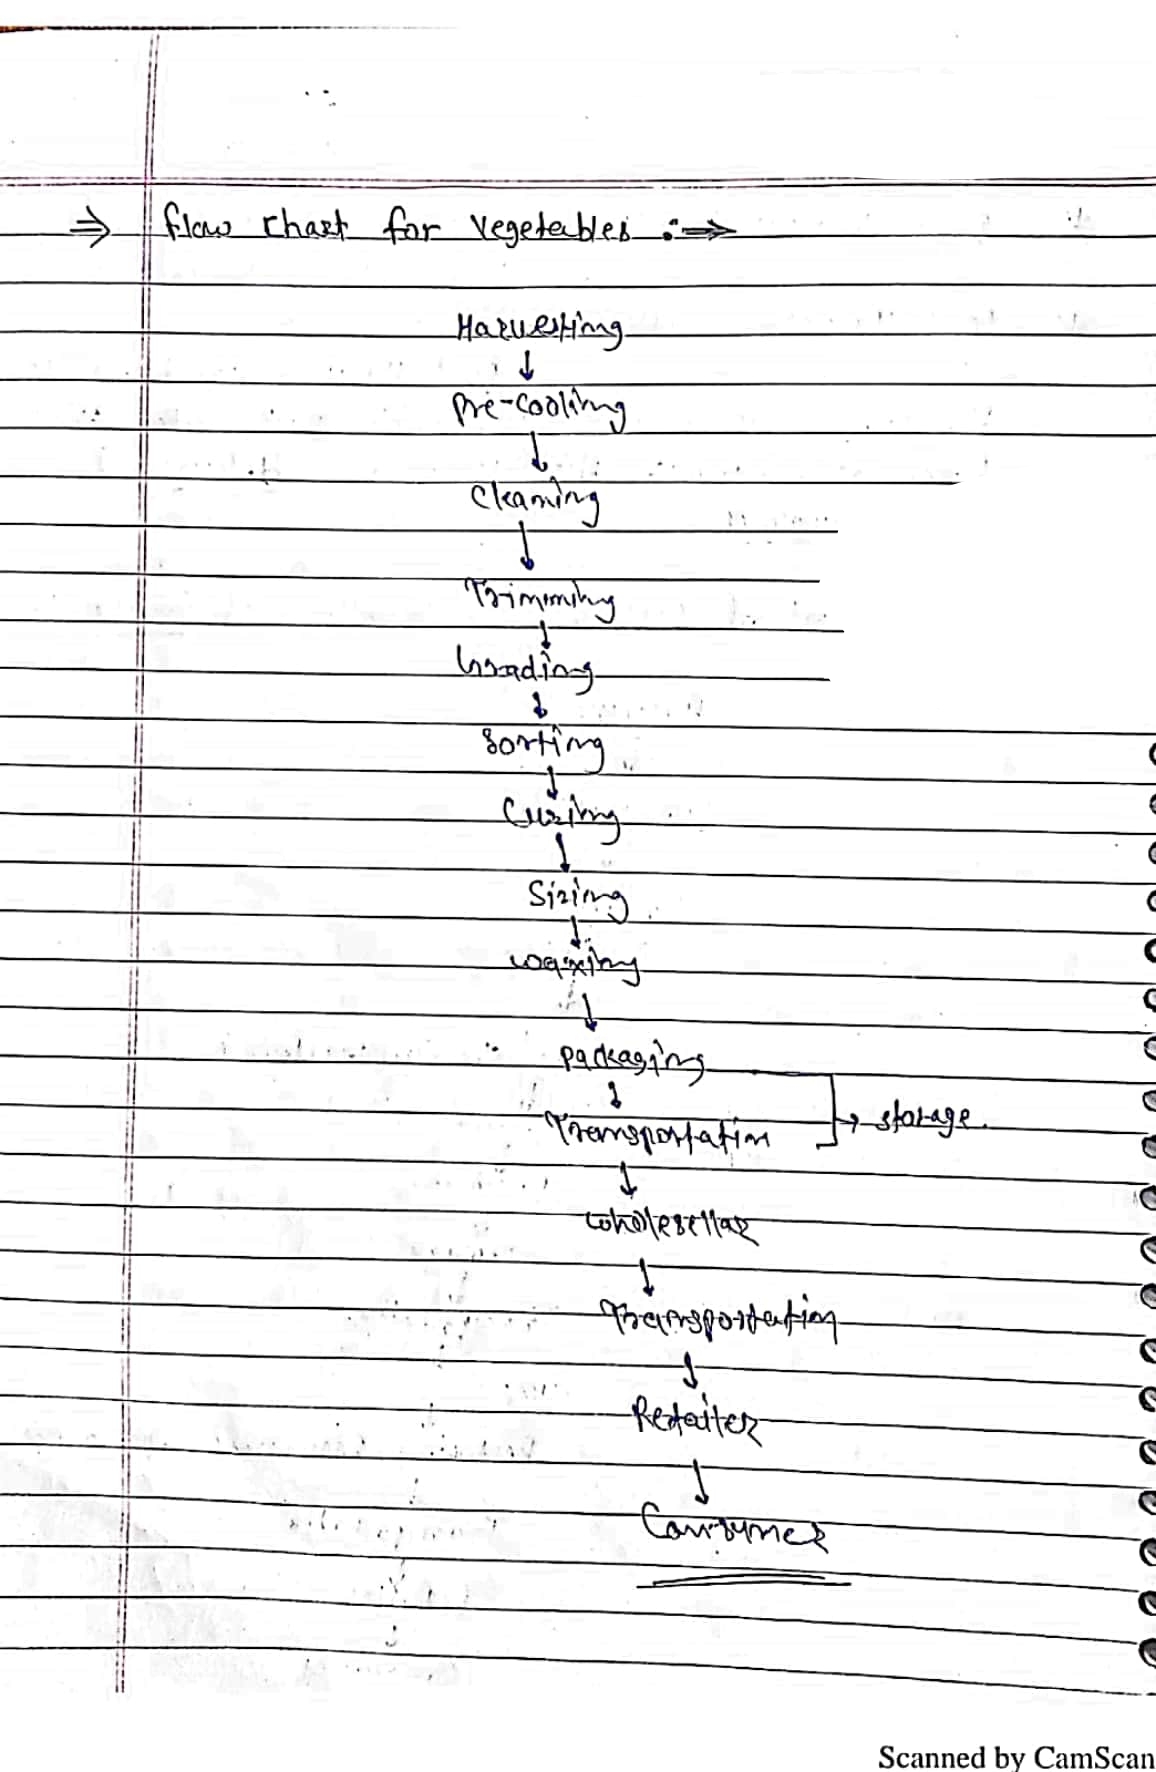 ⇒ flow chart for vegetables :⇒
Harvesting
↓
Pre-cooling
↓
Cleaning
↓
Trimming
↓
Grading
↓
Sorting
↓
Curing
↓
Sizing
↓
waxing
↓
Packaging
↓
Transportation → storage.
↓
wholesellar
↓
Transportation
↓
Retailer
↓
Consumer
Scanned by CamScan